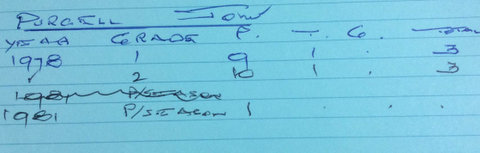 PURCELL JOHN
YEAR GRADE P. T. G. TOTAL
1978 1 9 1 . 3
✓ 2 10 1 . 3
1981 P/SEASON
1981 P/SEASON 1 . . .